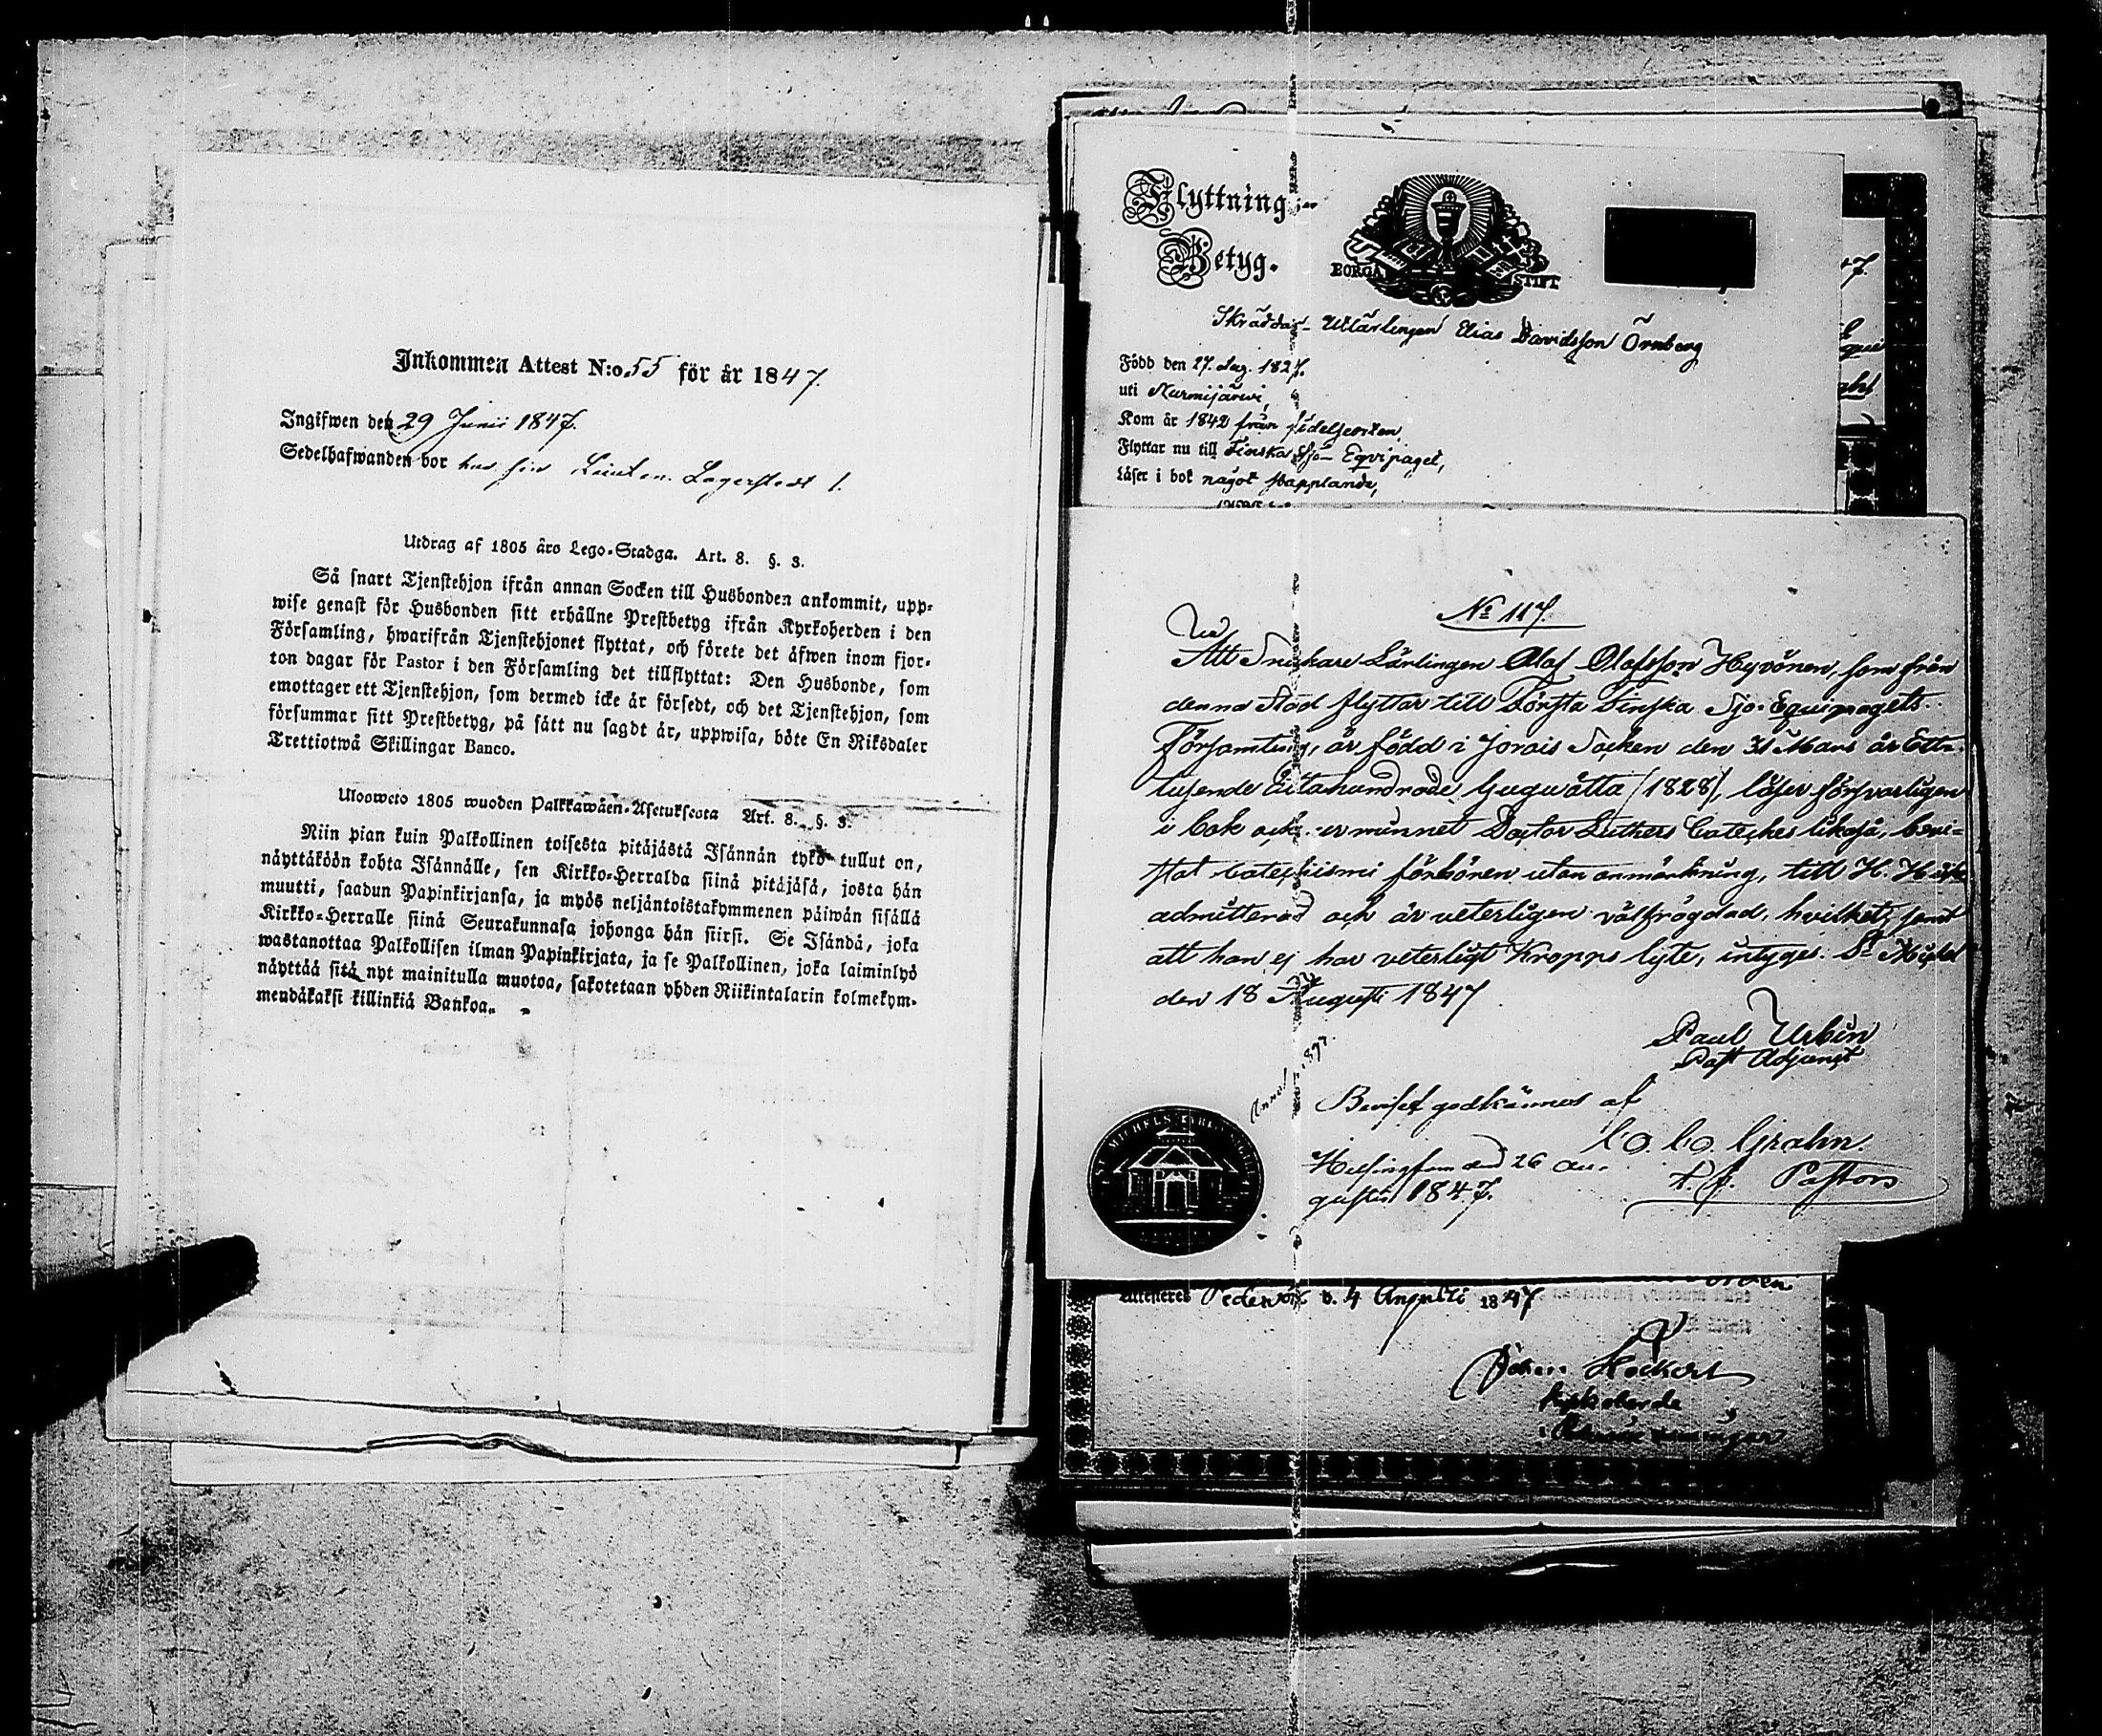 Inkommen Attest N:o 55 för år 1847.
Ingifwen den 29 Junii 1847.
Sedelhafwanden bor hos Lieuten. Lagerstedt
Utdrag af 1805 års Lego-Stadga. Art. 8. §. 3.
Så snart Tjenstehjon ifrån annan Socken till Husbonden ankommit, upp-
wise genast för Husbonden sitt erhållne Prestbetyg ifrån Kyrkoherden i den
Församling, hwarifrån Tjenstehjonet flyttat, och förete det äfwen inom fjor-
ton dagar för Pastor i den Församling det tillflyttat: Den Husbonde, som
emottager ett Tjenstehjon, som dermed icke är försedt, och det Tjenstehjon, som
försummar sitt Prestbetyg, på sätt nu sagdt är, uppwisa, böte En Riksdaler
Trettiotwå Skillingar Banco.
Ulosweto 1805 wuoden Palkkawäen-Asetuksesta Art. 8. §. 3.
Niin pian kuin Palkollinen toisesta pitäjästä Isännän tykö tullut on,
näyttäköön kohta Isännälle, sen Kirkko-Herralda siinä pitäjäsä, josta hän
muutti, saadun Papinkirjansa, ja myös neljäntoistakymmenen päiwän sisällä
Kirkko-Herralle siinä Seurakunnasa johonga hän siirsi. Se Isändä, joka
wastanottaa Palkollisen ilman Papinkirjata, ja se Palkollinen, joka laiminlyö
näyttää sitä nyt mainitulla muotoa, sakotetaan yhden Riikintalarin kolmekym-
mendäkaksi killinkiä Bankoa.
Flyttnings-
Betyg.
BORGÅ STIFT
Skräddar-Utlärlingen Elias Davidsson Örnberg
Född den 27. 1827.
uti Nurmijärwi,
Kom år 1842 från födelseorten,
Flyttar nu till Finska Sjö-Equipaget,
Läser i bok något stapplande,
No 117.
Att Snickare Lärlingen Olof Olofsson Hyvönen, som från
denna Stad flyttar till Första Finska Sjö-Equipagets
Församling, är född i Jorois Socken den 31 Mars år Ett-
tusende Åttahundrade tjuguåtta (1828), läser försvarligen
i bok och ur minnet Doctor Luthers Cateches likaså, bevi-
stat Catechismi förhören utan anmärkning, till H.
admitterad och är veterligen välfrägdad, hvilket, samt
att han ej har veterligt Kropps lyte, intyges. St Michel
den 18 Augusti 1847
Paul Urbin
Past Adjunct
Beviset godkännes af
C. C. Grahn.
t. f. Pastor
Helsingfors den 26 Au-
gusti 1847.
ST MICHELS
Attesteres Pedersöre d. 4 Augusti 1847
Johan Hockert
Kyrkoherde